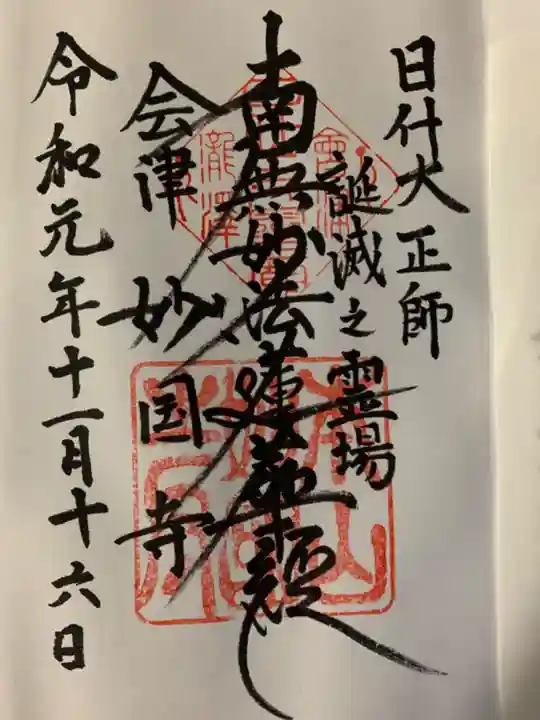 日什大正師
誕滅之霊場
南無妙法蓮華経
会津 妙国寺
令和元年十一月十六日
瀧澤